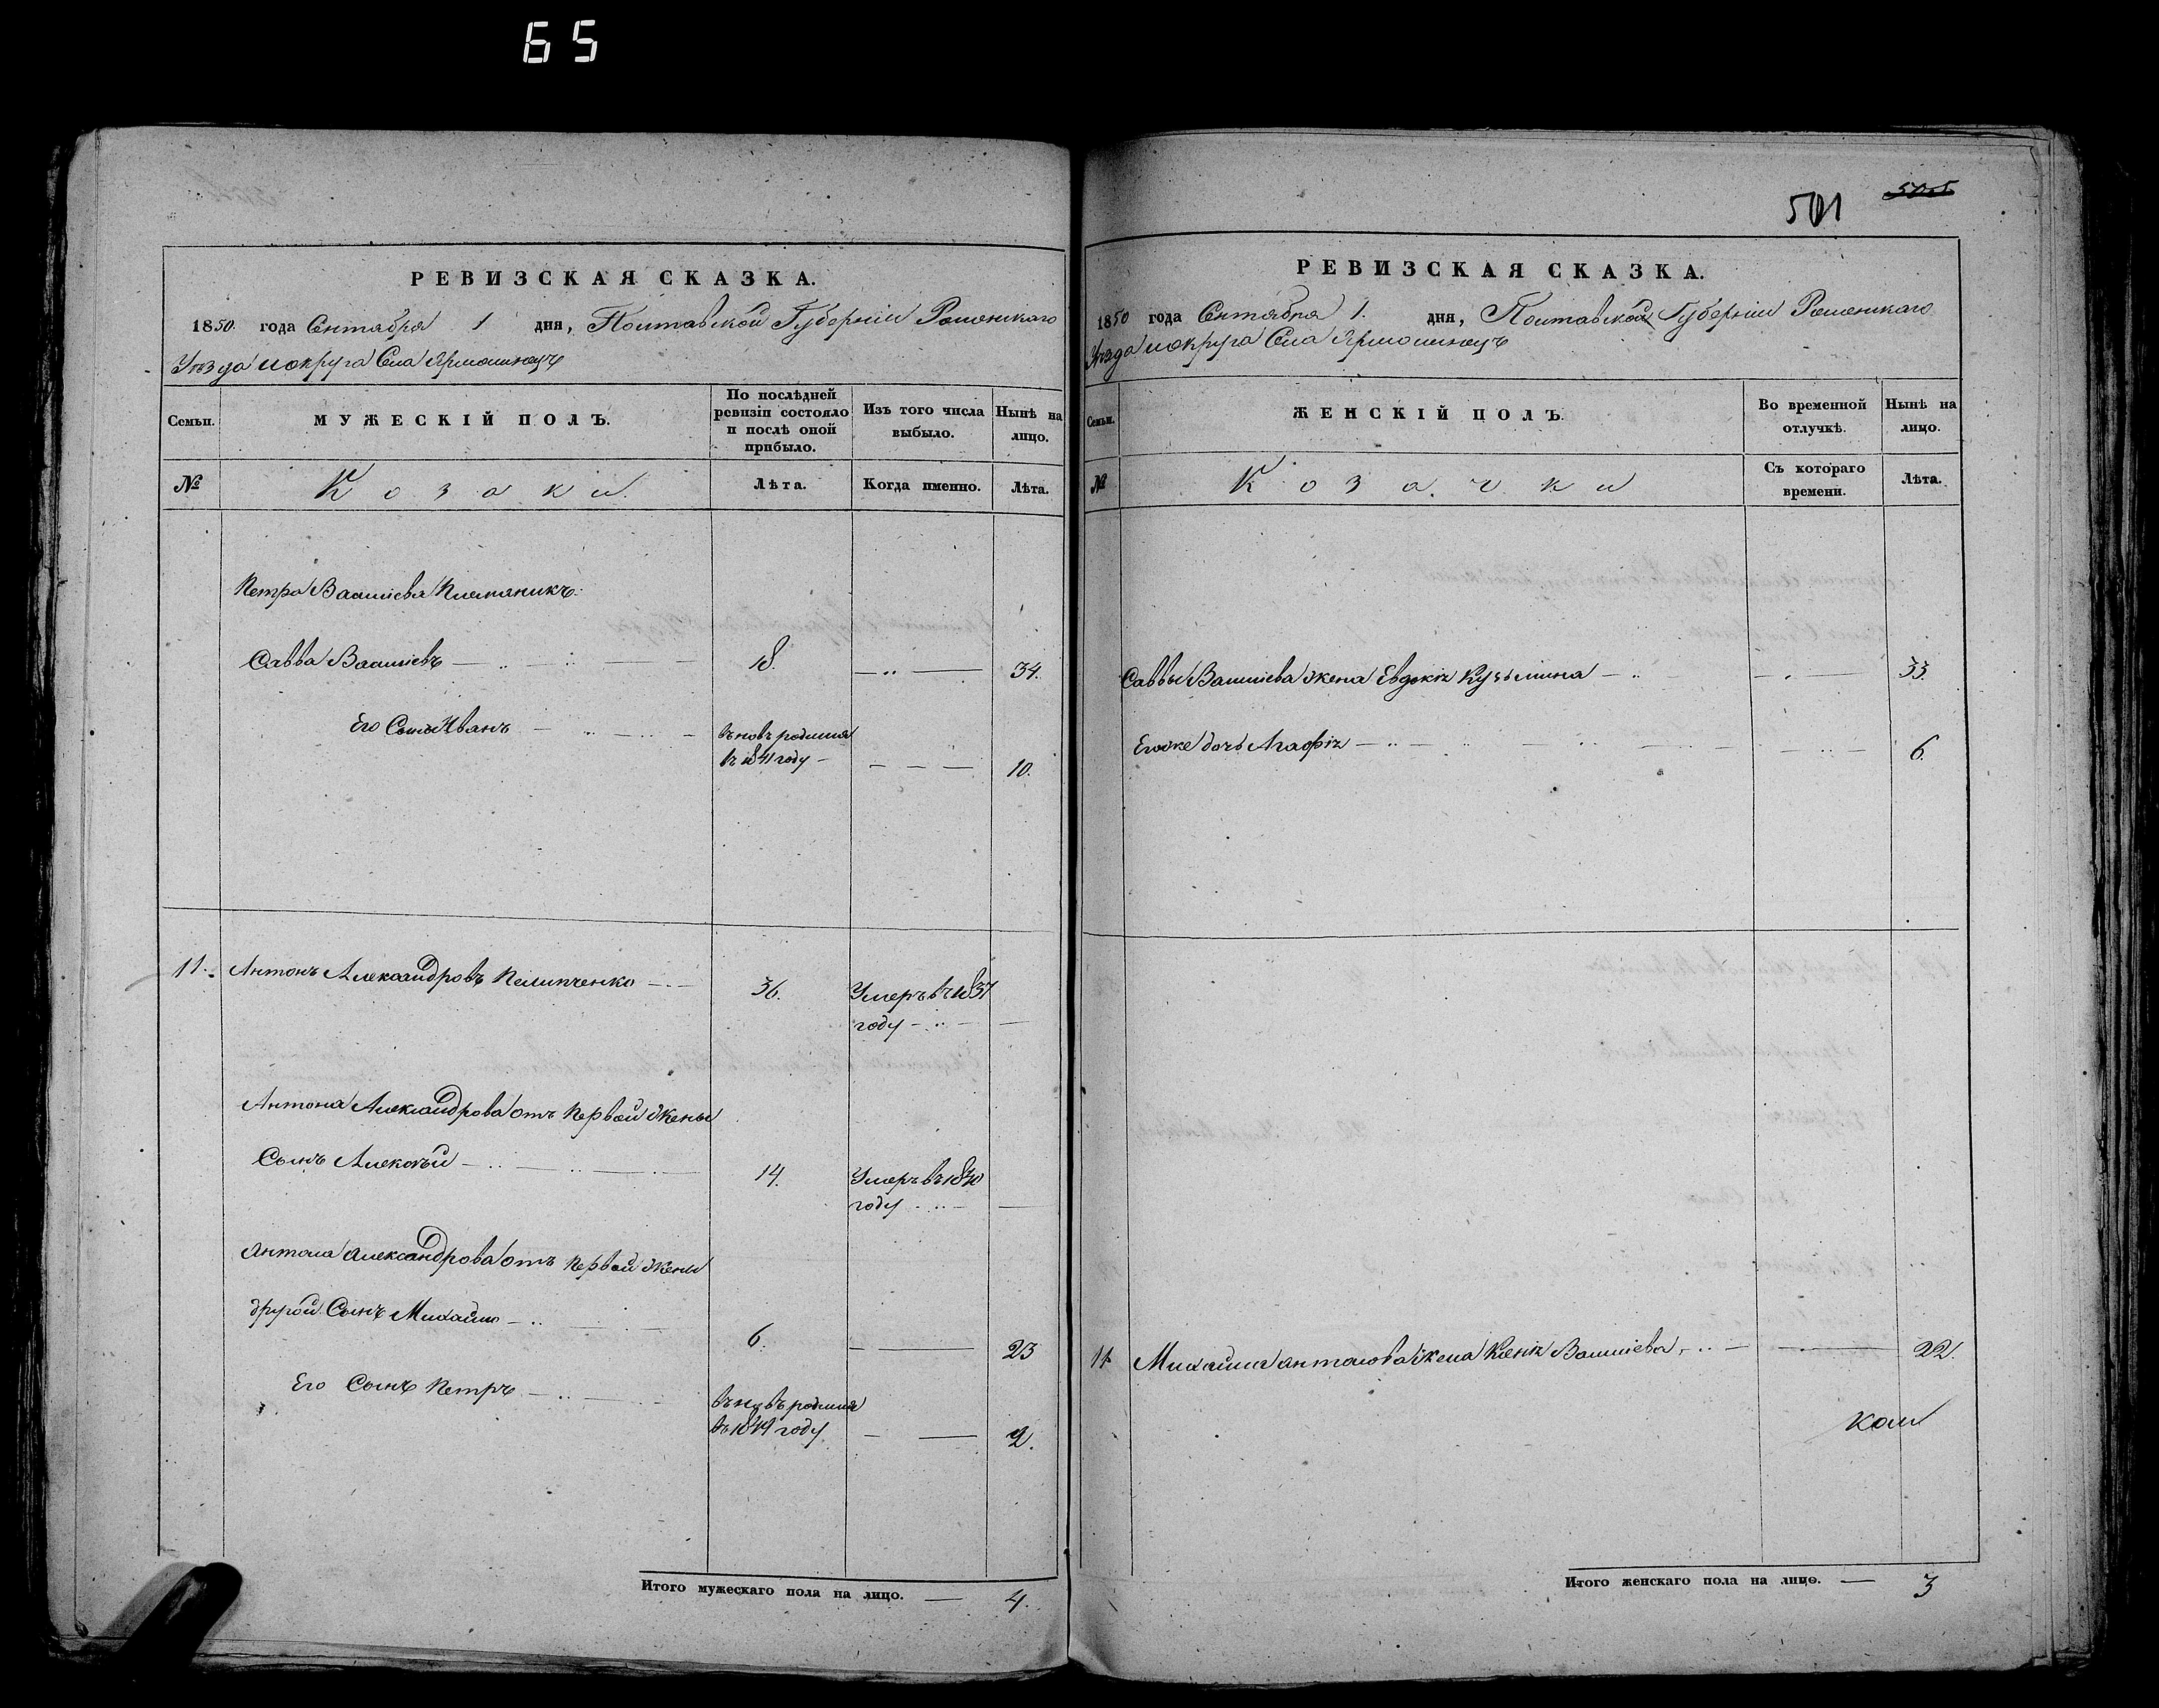 65
501 505
РЕВИЗСКАЯ СКАЗКА.
1850. года Сентября 1 дня, Полтавской Губернiи Роменскаго
Уѣзда и округа Села Ярмолинецъ
Семьи. МУЖЕСКIЙ ПОЛЪ. По послѣдней ревизiи состояло и послѣ оной прибыло. Изъ того числа выбыло. Нынѣ на лицо.
№ Козаки. Лѣта. Когда именно. Лѣта.
Петра Василiева Племяникъ:
Савва Василiевъ 18. 34.
Его Сынъ Иванъ въновь родился
въ 1841 году 10.
11. Антонъ Александровъ Пелипченко 36. Умеръ въ 1837
году
Антона Александрова отъ первой жены
Сынъ Алексѣй 14. Умеръ въ 1840
году
Антона Александрова отъ первой жены
другой Сынъ Михайло 6. 23
Его Сынъ Петръ въновь родился
въ 1849 году 2.
Итого мужескаго пола на лицо. 4.
РЕВИЗСКАЯ СКАЗКА.
1850 года Сентября 1. дня, Полтавской Губернiи Роменскаго
Уѣзда и округа Села Ярмолинецъ
Семьи. ЖЕНСКIЙ ПОЛЪ. Во временной отлучкѣ. Нынѣ на лицо.
№ Козачки Съ котораго времени. Лѣта.
Саввы Василiева жена Евдокiя Кузьмина 33.
Егоже дочь Агафiя 6.
11 Михайла Антонова жена Ксенiя Василiева 22.
Итого женскаго пола на лицо. 3